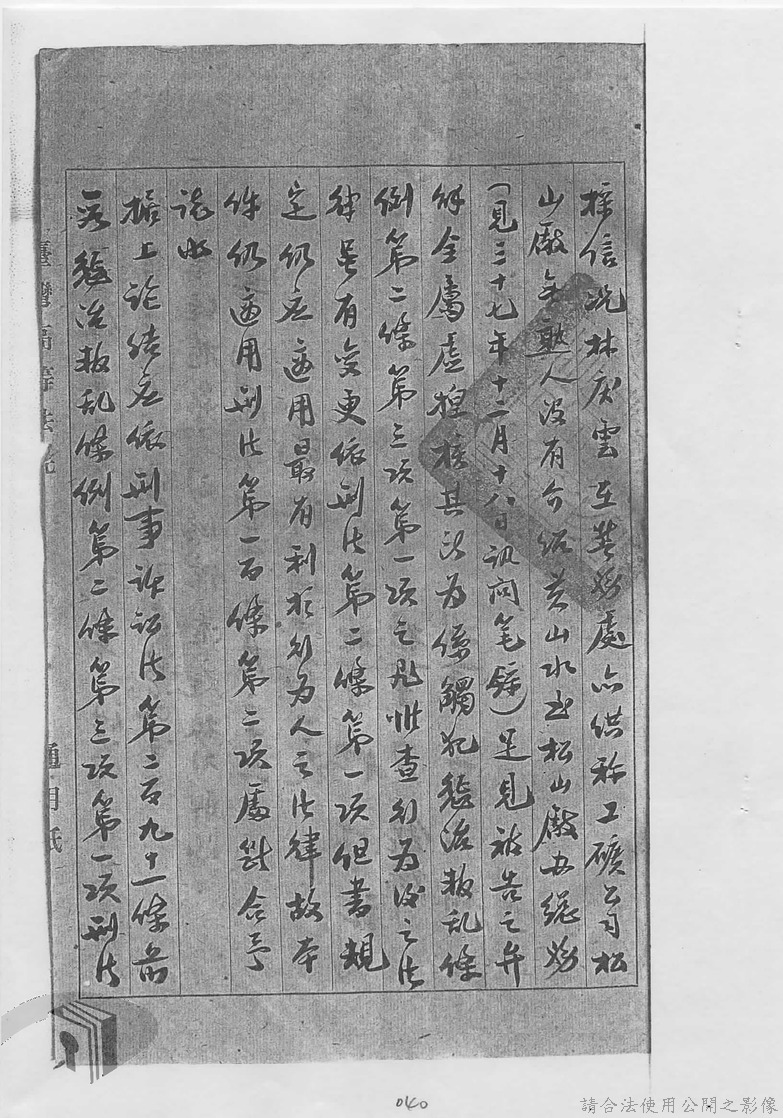 採信況林庆雲在營務處亦供称工礦公司松
山廠無熟人没有介紹黃山水到松山廠女總務
（見三十七年十二月十八日訊问笔録）足見被告之弁
解全屬虛捏核其所为係觸犯懲治叛乱條
例第二條第三項第一項之罪惟查行为後之法
律虽有变更依刑法第二條第一項但書規
定仍应適用最有利於行为人之法律故本
件仍適用刑法第一百條第二項處断合予
說明
据上論结应依刑事訴訟法第二百九十一條前
段懲治叛乱條例第二條第三項第一項刑法
臺灣高等法院
通用紙
040
請合法使用公開之影像